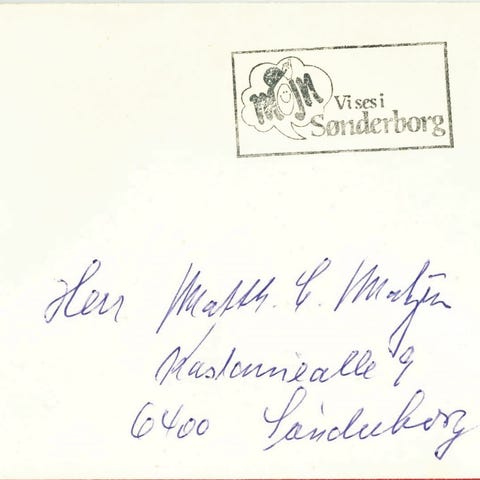 mojn
Vi ses i
Sønderborg
Herr Matth. C. Matzen
Kastanieallé 9
6400 Sønderborg